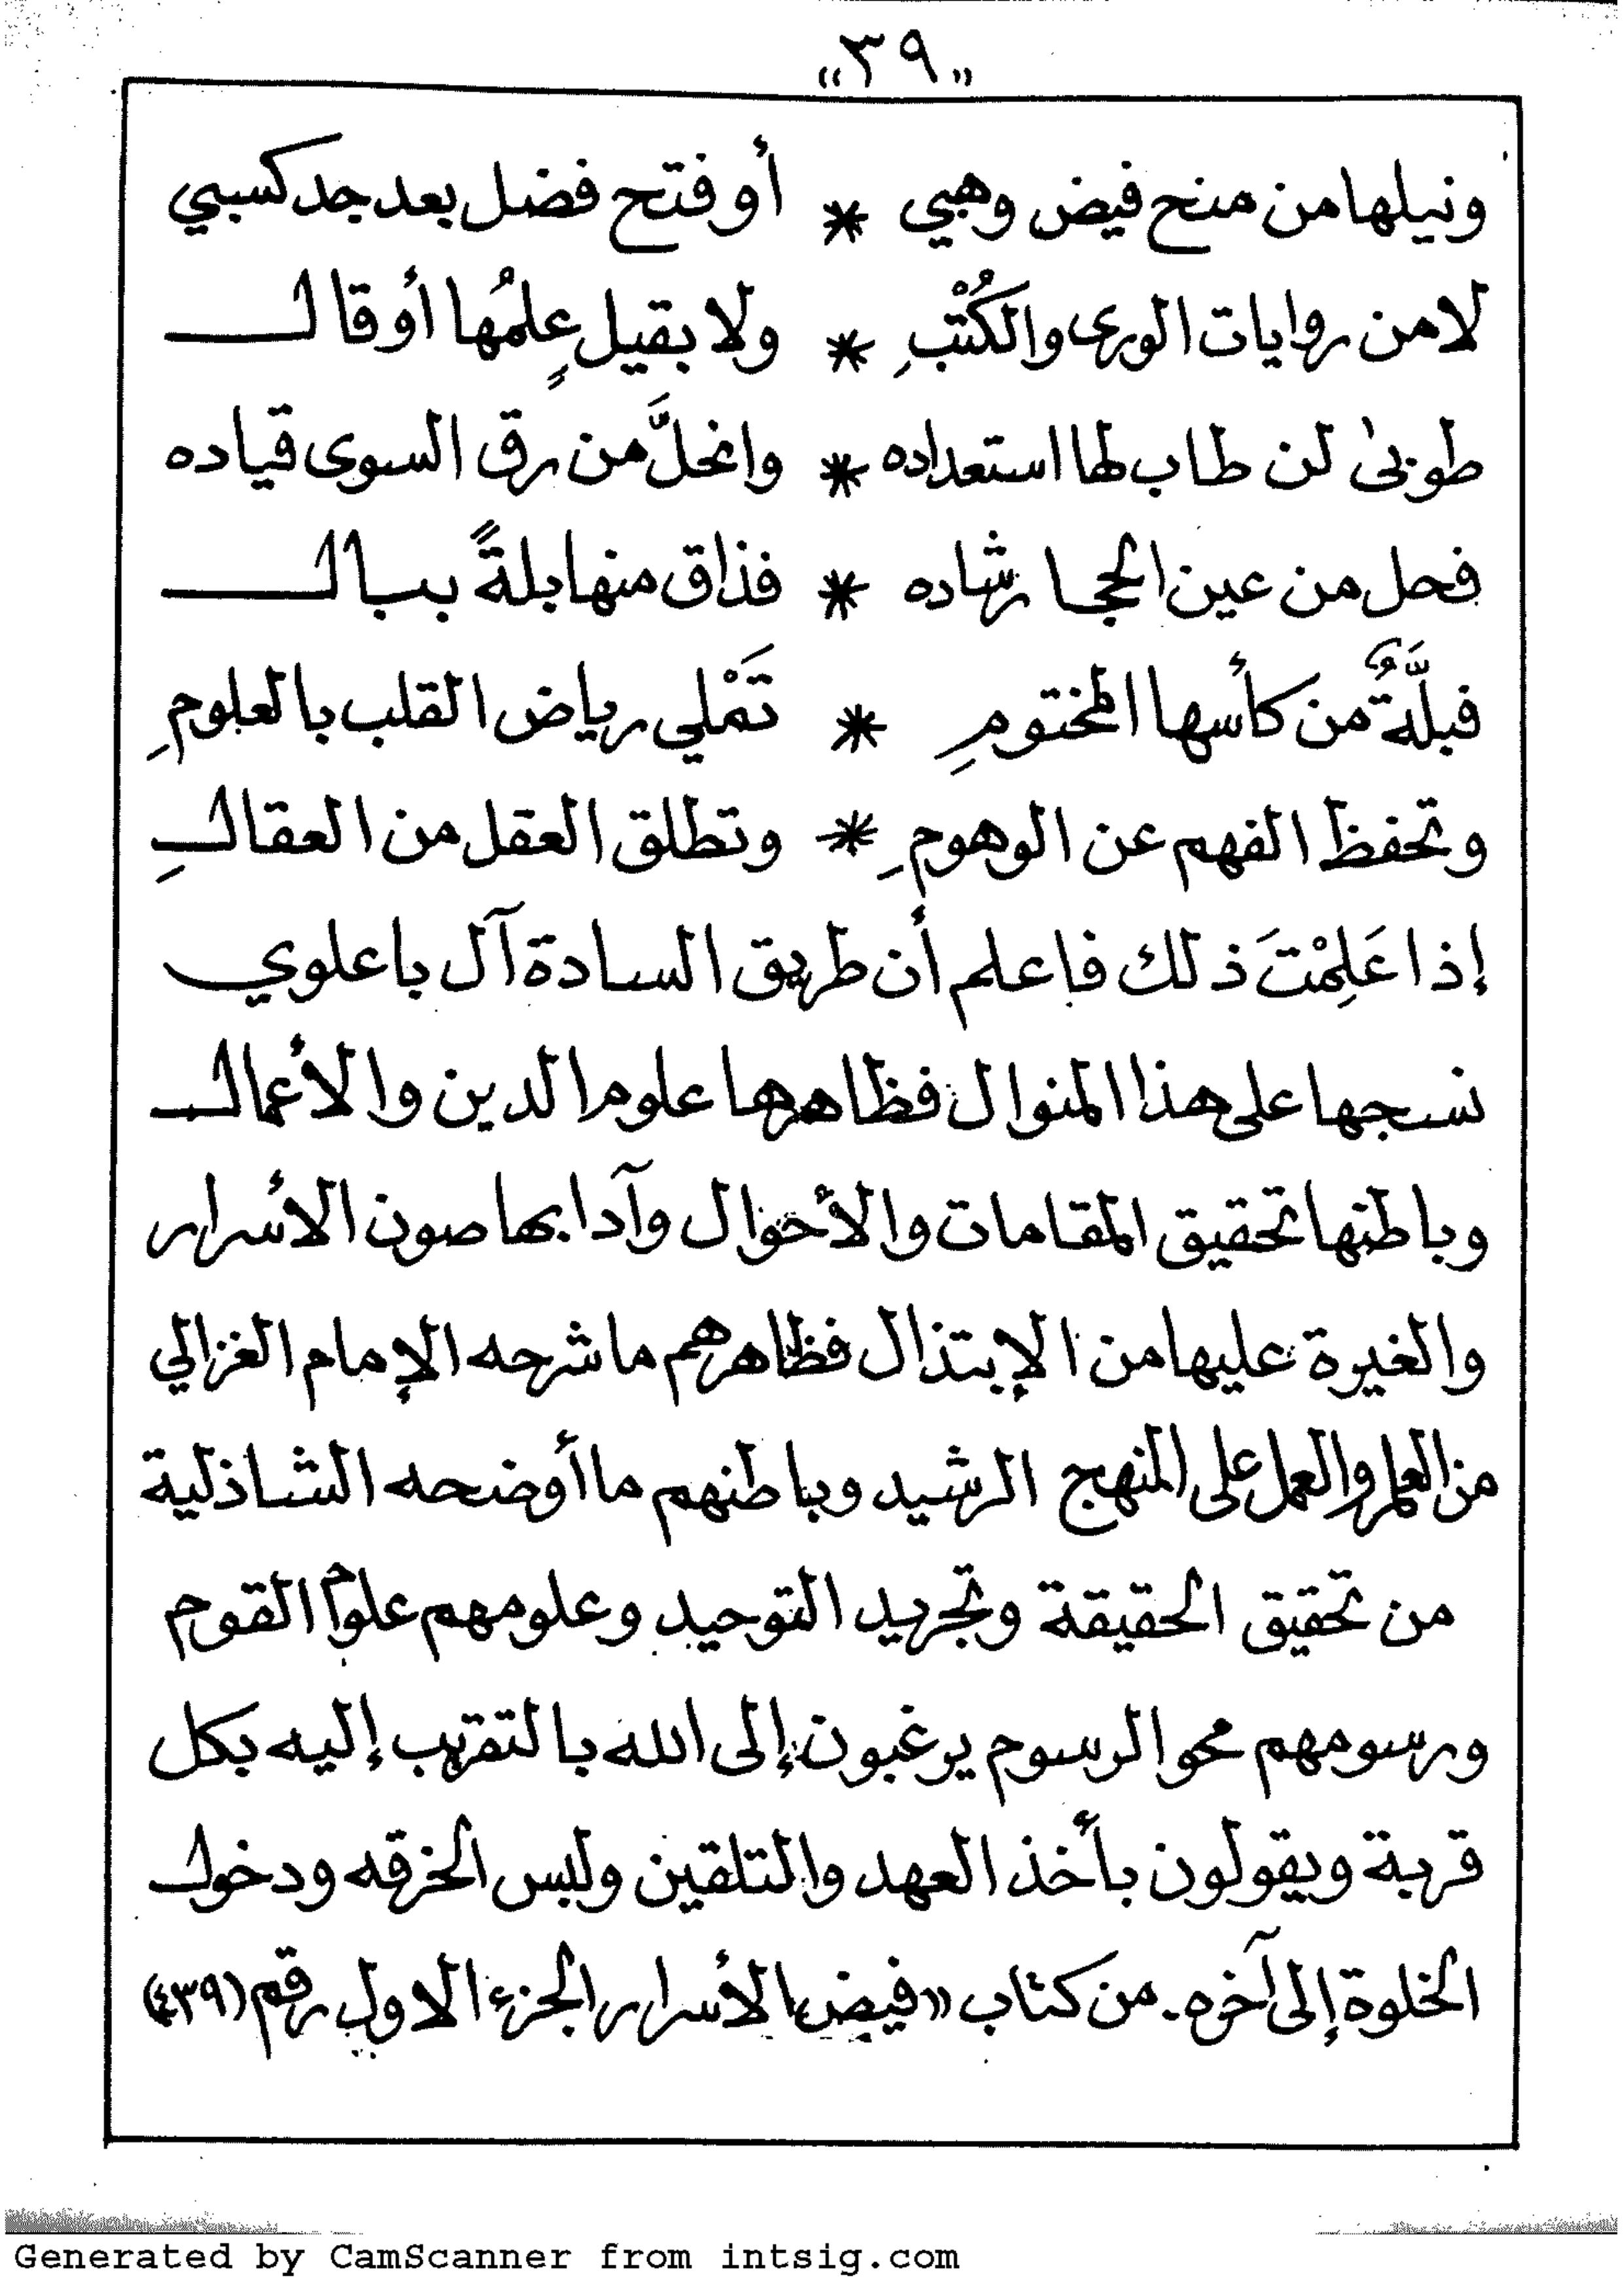 «٣٩»
ونيلها من منح فيض وهبي * أو فتح فضل بعد جد كسبي
لا من روايات الورى والكُتْبِ * ولا بقيل عِلمُها أو قال
طوبىٰ لمن طاب لها استعداده * وانحلَّ من رق السوى قياده
فحل من عين الحجا رشاده * فذاق منها بلةً ببال
فبلَّةٌ من كأسها المختومِ * تَمْلي رياض القلب بالعلومِ
وتحفظ الفهم عن الوهومِ * وتطلق العقل من العقالِ
إذا عَلِمْتَ ذلك فاعلم أن طريق السادة آل باعلوي
نسجها على هذا المنوال فظاهرها علوم الدين والأعمال
وباطنها تحقيق المقامات والأحوال وآدابها صون الأسرار
والغيرة عليها من الإبتذال فظاهرهم ما شرحه الإمام الغزالي
من العلم والعمل على المنهج الرشيد وباطنهم ما أوضحه الشاذلية
من تحقيق الحقيقة وتجريد التوحيد وعلومهم علوم القوم
ورسومهم محو الرسوم يرغبون إلى الله بالتقرب إليه بكل
قربة ويقولون بأخذ العهد والتلقين ولبس الخرقه ودخول
الخلوة إلى آخره. من كتاب «فيض الأسرار الجزء الاول رقم (٤٣٩)
Generated by CamScanner from intsig.com